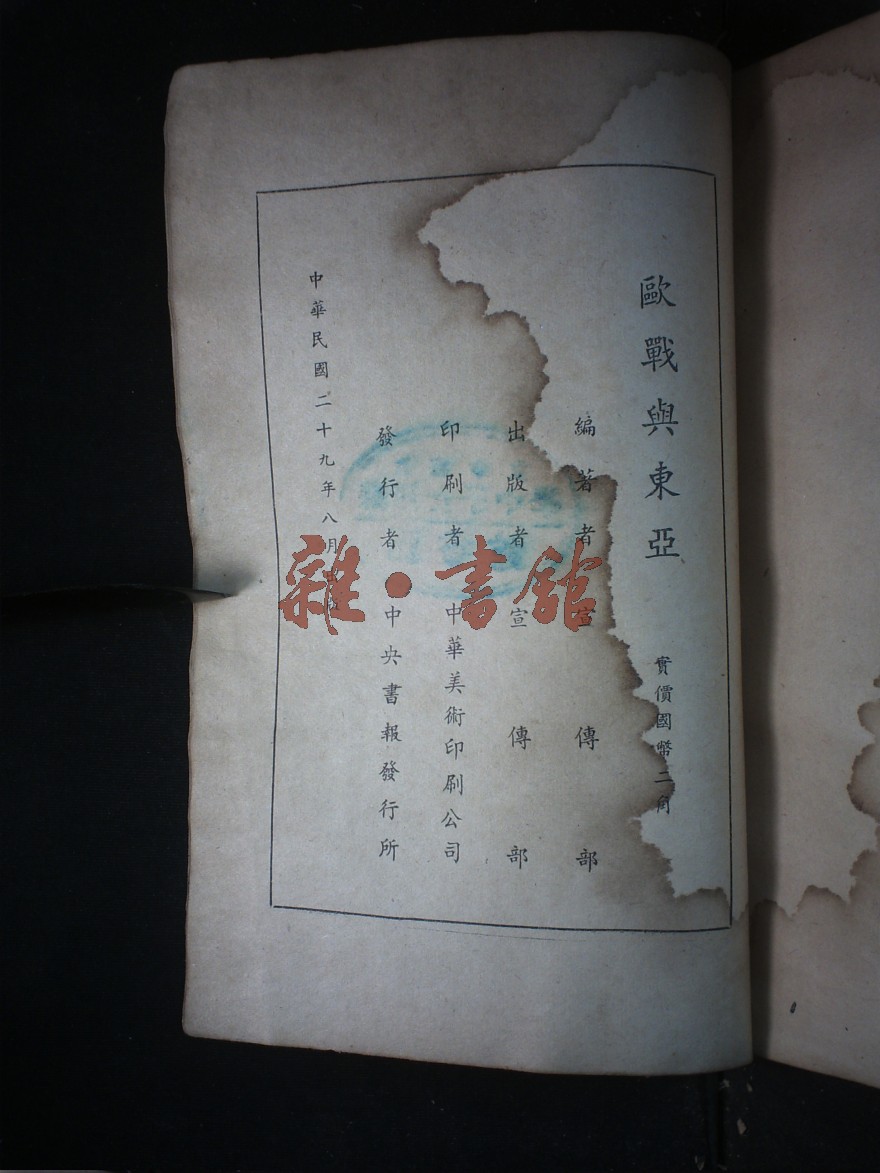 歐戰與東亞
實價國幣二角
編著者 宣傳部
出版者 宣傳部
印刷者 中華美術印刷公司
發行者 中央書報發行所
中華民國二十九年八月
雜·書館